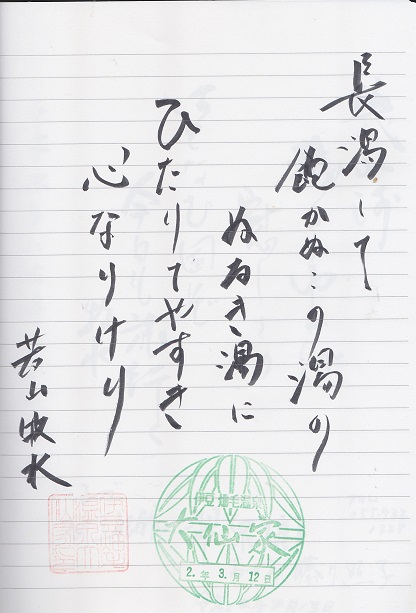 長湯して
飽かぬこの湯の
ぬるき湯に
ひたりてやすき
心なりけり
若山牧水
伊豆 畑毛温泉
大仙家
2. 年 3. 月 12 日